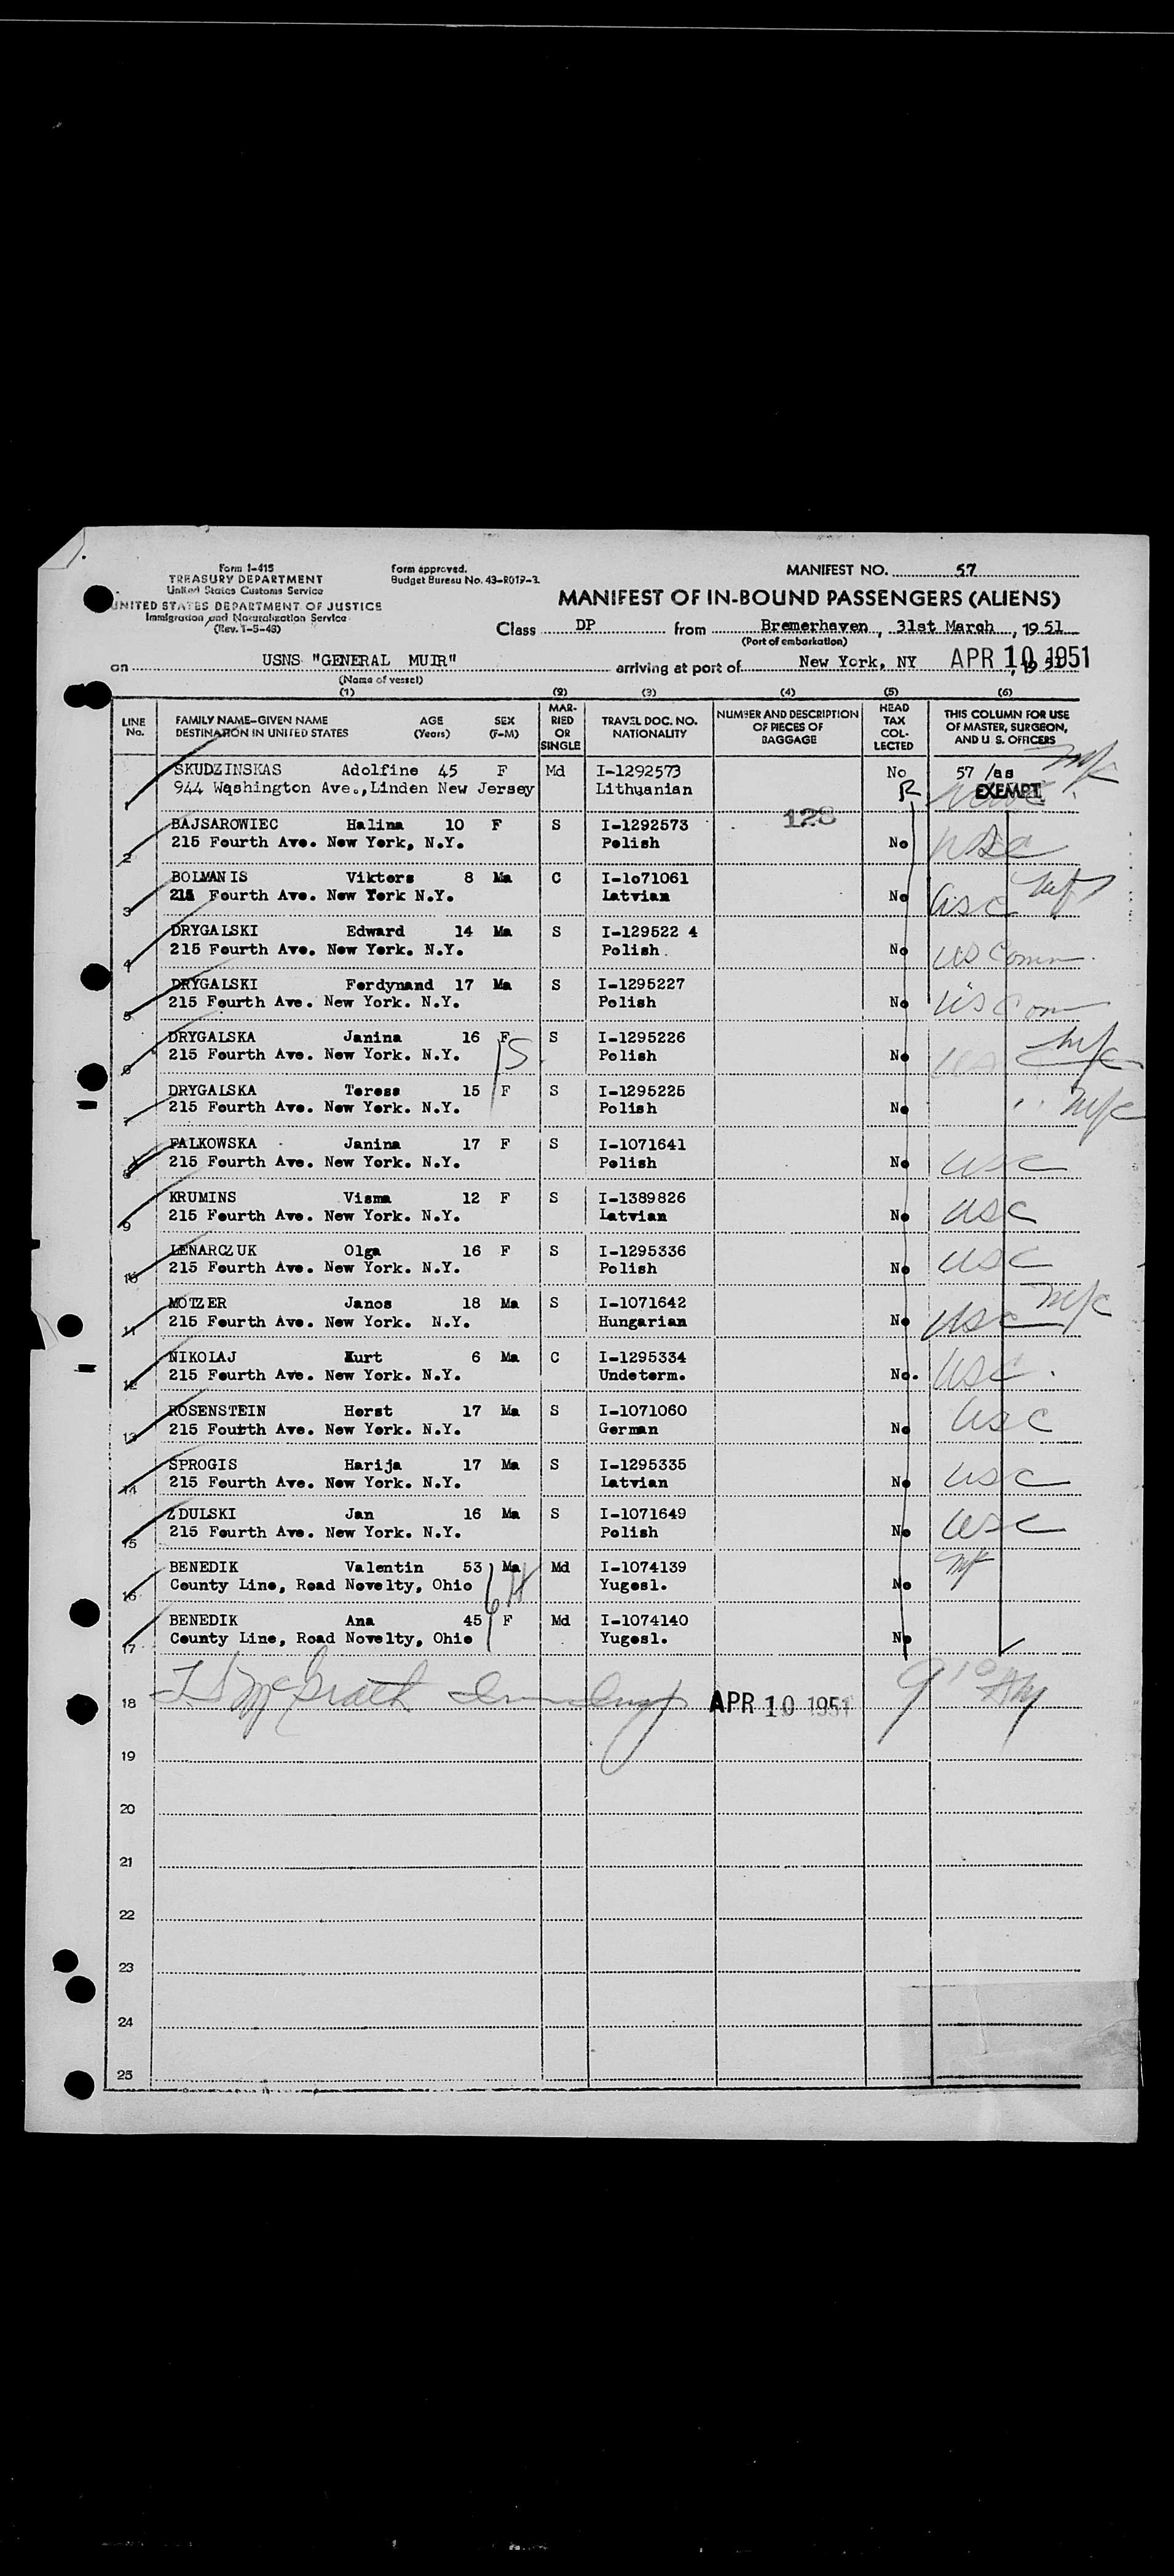 Form I-415
TREASURY DEPARTMENT
United States Customs Service
UNITED STATES DEPARTMENT OF JUSTICE
Immigration and Naturalization Service
(Rev. 1-5-48)
Form approved.
Budget Bureau No. 43-R017-3.
MANIFEST NO. 57
MANIFEST OF IN-BOUND PASSENGERS (ALIENS)
Class DP from Bremerhaven, 31st March, 1951
(Port of embarkation)
on USNS "GENERAL MUIR" arriving at port of New York, NY APR 10 1951, 1951
(Name of vessel)
(1) (2) (3) (4) (5) (6)
LINE No. FAMILY NAME-GIVEN NAME DESTINATION IN UNITED STATES AGE (Years) SEX (F-M) MARRIED OR SINGLE TRAVEL DOC. NO. NATIONALITY NUMBER AND DESCRIPTION OF PIECES OF BAGGAGE HEAD TAX COLLECTED THIS COLUMN FOR USE OF MASTER, SURGEON, AND U. S. OFFICERS
1 SKUDZINSKAS Adolfine 45 F Md I-1292573 No 57 /as
944 Washington Ave., Linden New Jersey Lithuanian EXEMPT
128
2 BAJSAROWIEC Halina 10 F S I-1292573
215 Fourth Ave. New York, N.Y. Polish No usc
3 BOLMANIS Viktors 8 Ma C I-1o71061
215 Fourth Ave. New York N.Y. Latvian No usc
4 DRYGALSKI Edward 14 Ma S I-129522 4
215 Fourth Ave. New York. N.Y. Polish. No us comm
5 DRYGALSKI Ferdynand 17 Ma S I-1295227
215 Fourth Ave. New York. N.Y. Polish No us com
6 DRYGALSKA Janina 16 F S I-1295226
215 Fourth Ave. New York. N.Y. Polish No
7 DRYGALSKA Teresa 15 F S I-1295225
215 Fourth Ave. New York. N.Y. Polish No
8 FALKOWSKA Janina 17 F S I-1071641
215 Fourth Ave. New York. N.Y. Polish No usc
9 KRUMINS Visma 12 F S I-1389826
215 Fourth Ave. New York. N.Y. Latvian No usc
10 LENARCZUK Olga 16 F S I-1295336
215 Fourth Ave. New York. N.Y. Polish No usc
11 MOTZER Janos 18 Ma S I-1071642
215 Fourth Ave. New York. N.Y. Hungarian No usc
12 NIKOLAJ Kurt 6 Ma C I-1295334
215 Fourth Ave. New York. N.Y. Undeterm. No. usc
13 ROSENSTEIN Horst 17 Ma S I-1071060
215 Fourth Ave. New York. N.Y. German No usc
14 SPROGIS Harija 17 Ma S I-1295335
215 Fourth Ave. New York. N.Y. Latvian No usc
15 ZDULSKI Jan 16 Ma S I-1071649
215 Fourth Ave. New York. N.Y. Polish No usc
16 BENEDIK Valentin 53 Ma Md I-1074139
County Line, Road Novelty, Ohio Yugosl. No
17 BENEDIK Ana 45 F Md I-1074140
County Line, Road Novelty, Ohio Yugosl. No
18 McGrath APR 10 1951
19
20
21
22
23
24
25